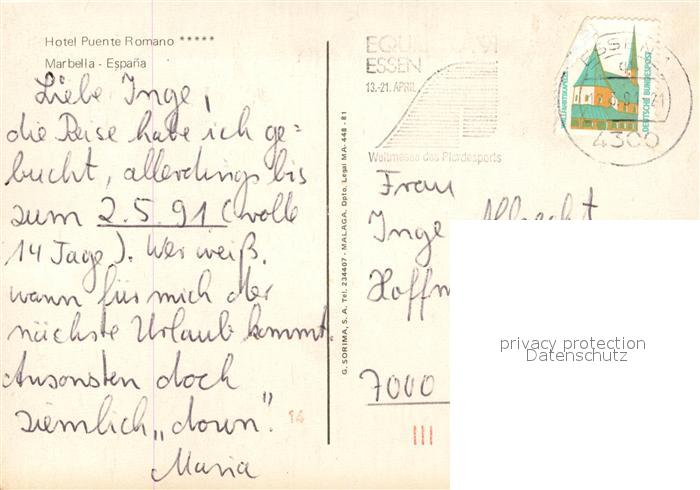 Hotel Puente Romano *****
Marbella - España
Liebe Inge,
die Reise habe ich ge=
bucht, allerdings bis
zum 2.5.91 (volle
14 Tage). Wer weiß,
wann für mich der
nächste Urlaub kommt.
Ansonsten doch
ziemlich „down“.
Maria
14
G. SORIMA, S. A. Tel. 234407 - MALAGA, Dpto. Legal MA-448-81
EQUITANA 91
ESSEN
13.-21. APRIL
Weltmesse des Pferdesports
ESSEN 1
4300
WALLFAHRTSKAPELLE
DEUTSCHE BUNDESPOST
Frau
Inge Albrecht
7000
privacy protection
Datenschutz